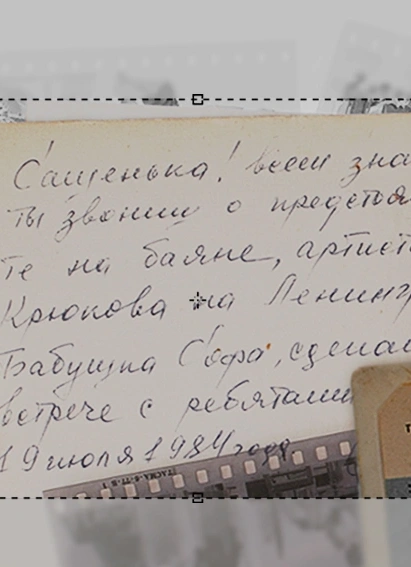 Сашенька! всем зна
ты звонил о предстоя
те на баяне, артист
Крюкова на Ленинг
Бабушка Софа, сделал
встрече с ребятами
19 июля 1984 года
TACMA-5-77-5 1